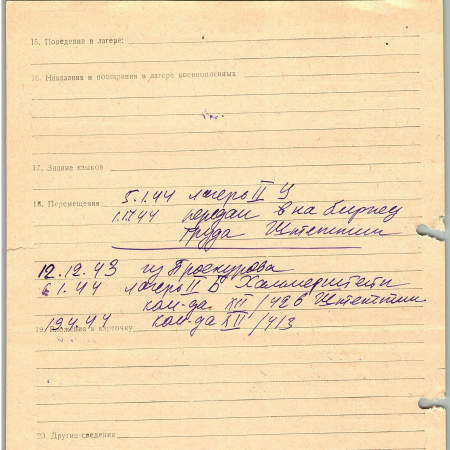 15. Поведение в лагере:
16. Наказания и поощрения в лагере военнопленных
17. Знание языков
18. Перемещения 5.1.44 лагерь II Ц
1.1.44 передан на биржу
труда Штеттин
12.12.43 из Проскурова
6.1.44 лагерь II Б Хаммерштейн
ком-да XII/426 Штеттин
19.4.44 ком-да XII/413
19. Вложения в карточку
20. Другие сведения